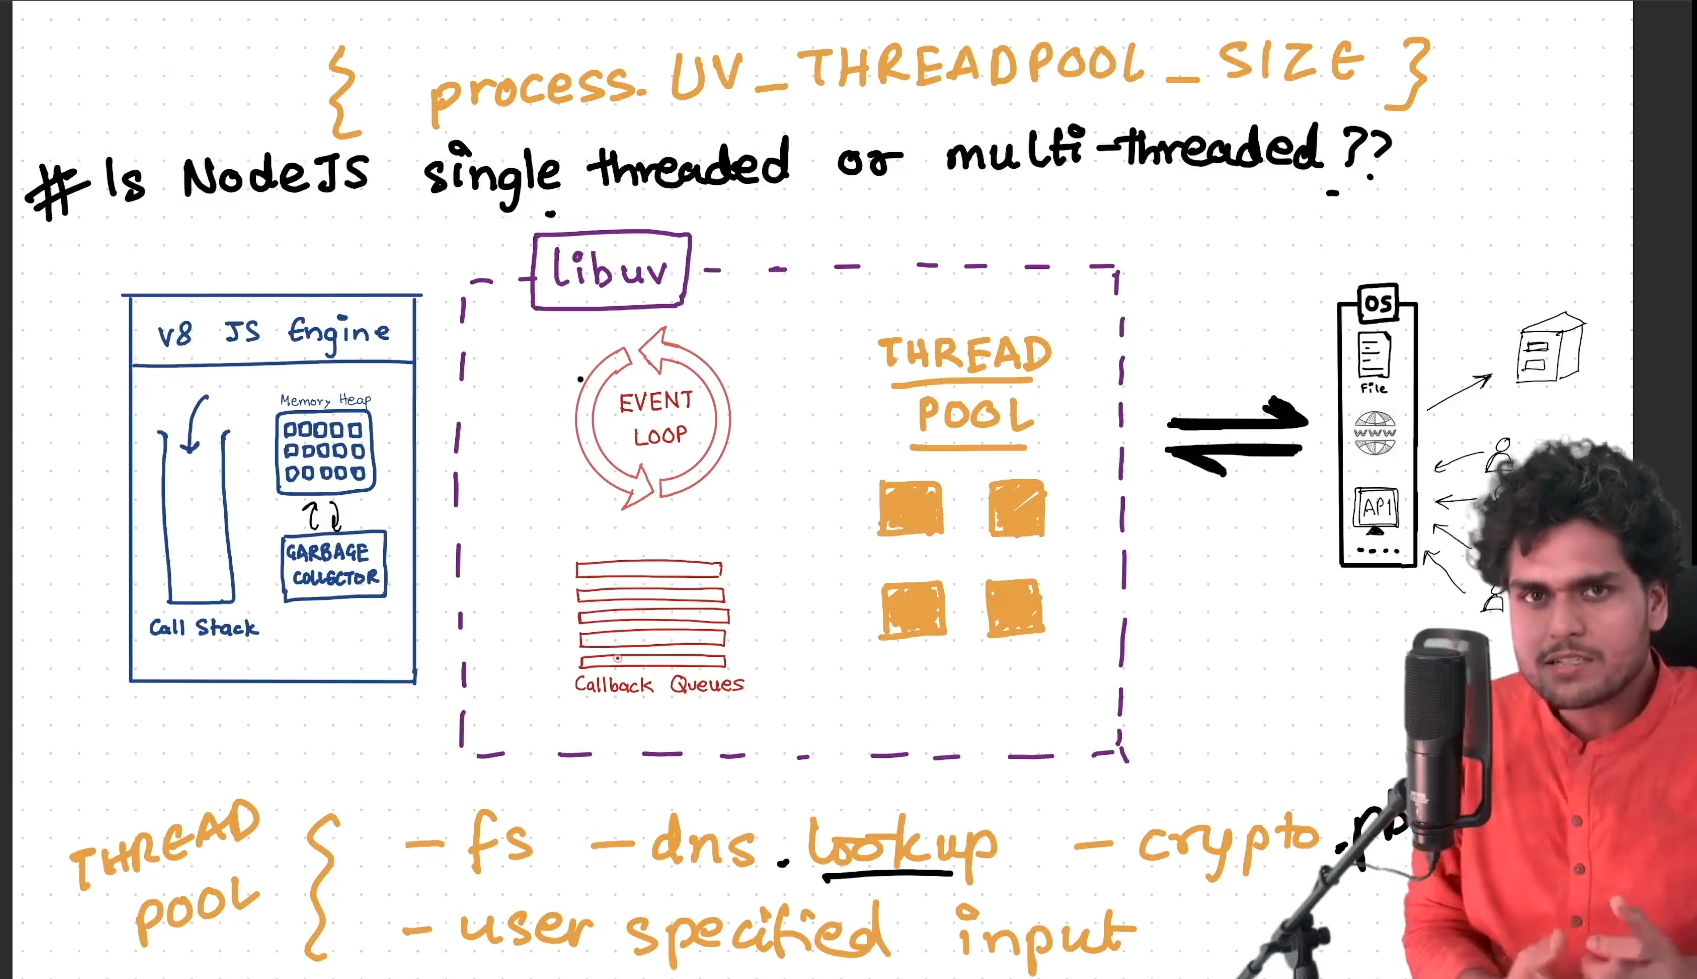 { process.UV_THREADPOOL_SIZE }
# Is NodeJS single threaded or multi-threaded??
libuv
V8 JS Engine
Memory Heap
GARBAGE
COLLECTOR
Call Stack
EVENT
LOOP
Callback Queues
THREAD
POOL
OS
File
WWW
API
THREAD
POOL
{ - fs - dns.lookup - crypto.
- user specified input